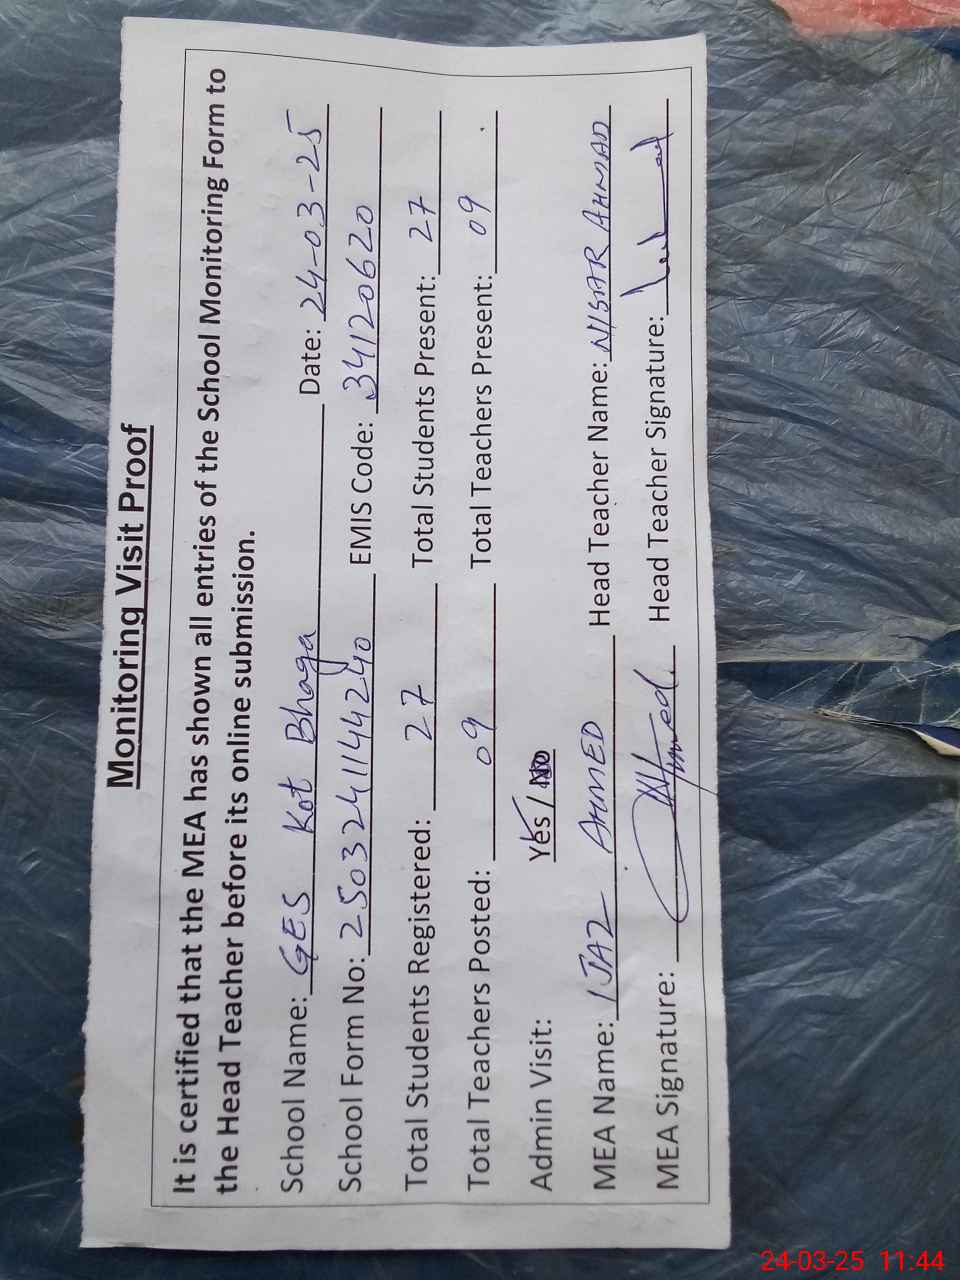 Monitoring Visit Proof
It is certified that the MEA has shown all entries of the School Monitoring Form to
the Head Teacher before its online submission.
School Name: GES Kot Bhaga Date: 24-03-25
School Form No: 250324114424240 EMIS Code: 34120620
Total Students Registered: 27 Total Students Present: 27
Total Teachers Posted: 09 Total Teachers Present: 09
Admin Visit: Yes / No
MEA Name: IJAZ AHMED Head Teacher Name: NISAR AHMAD
MEA Signature: Head Teacher Signature:
24-03-25 11:44